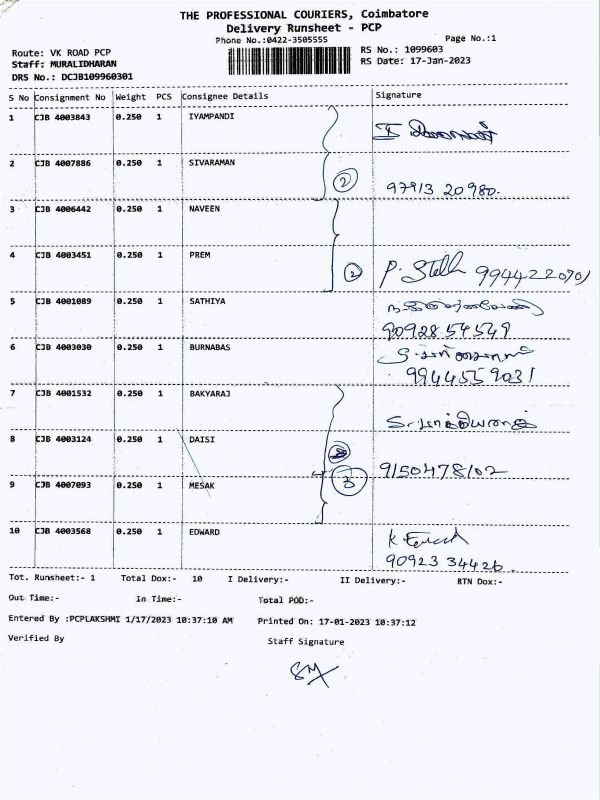 THE PROFESSIONAL COURIERS, Coimbatore
Delivery Runsheet - PCP
Phone No.:0422-3505555
Page No.:1
Route: VK ROAD PCP
RS No.: 1099603
Staff: MURALIDHARAN
RS Date: 17-Jan-2023
DRS No.: DCJB109960301
S No Consignment No Weight PCS Consignee Details Signature
1 CJB 4003843 0.250 1 IYAMPANDI
2 CJB 4007886 0.250 1 SIVARAMAN 2 97913 20980.
3 CJB 4006442 0.250 1 NAVEEN
4 CJB 4003451 0.250 1 PREM 2 P. Stella
5 CJB 4001089 0.250 1 SATHIYA
90928 54549
6 CJB 4003030 0.250 1 BURNABAS
9944559031
7 CJB 4001532 0.250 1 BAKYARAJ
8 CJB 4003124 0.250 1 DAISI 9150478102
9 CJB 4007093 0.250 1 MESAK 3
10 CJB 4003568 0.250 1 EDWARD
90923 34426.
Tot. Runsheet:- 1 Total Dox:- 10 I Delivery:- II Delivery:- RTN Dox:-
Out Time:- In Time:- Total POD:-
Entered By :PCPLAKSHMI 1/17/2023 10:37:10 AM Printed On: 17-01-2023 10:37:12
Verified By Staff Signature